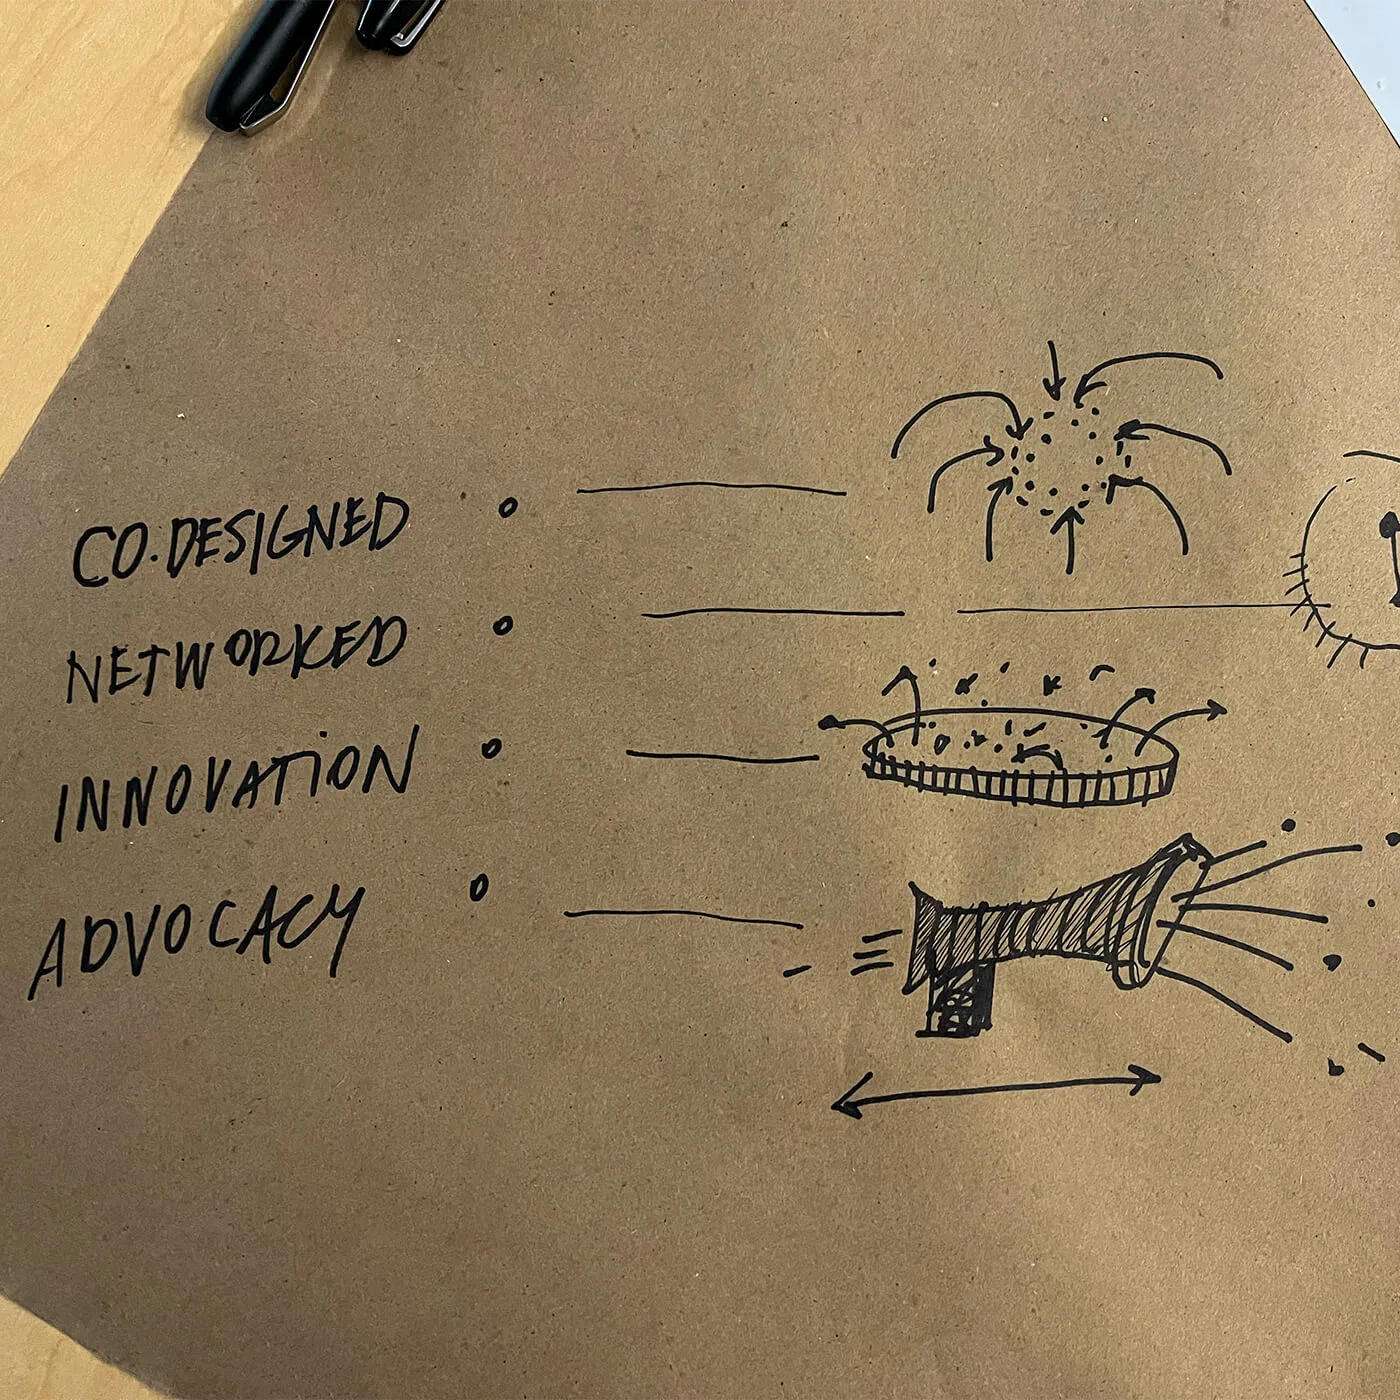 CO.DESIGNED
NETWORKED
INNOVATION
ADVOCACY